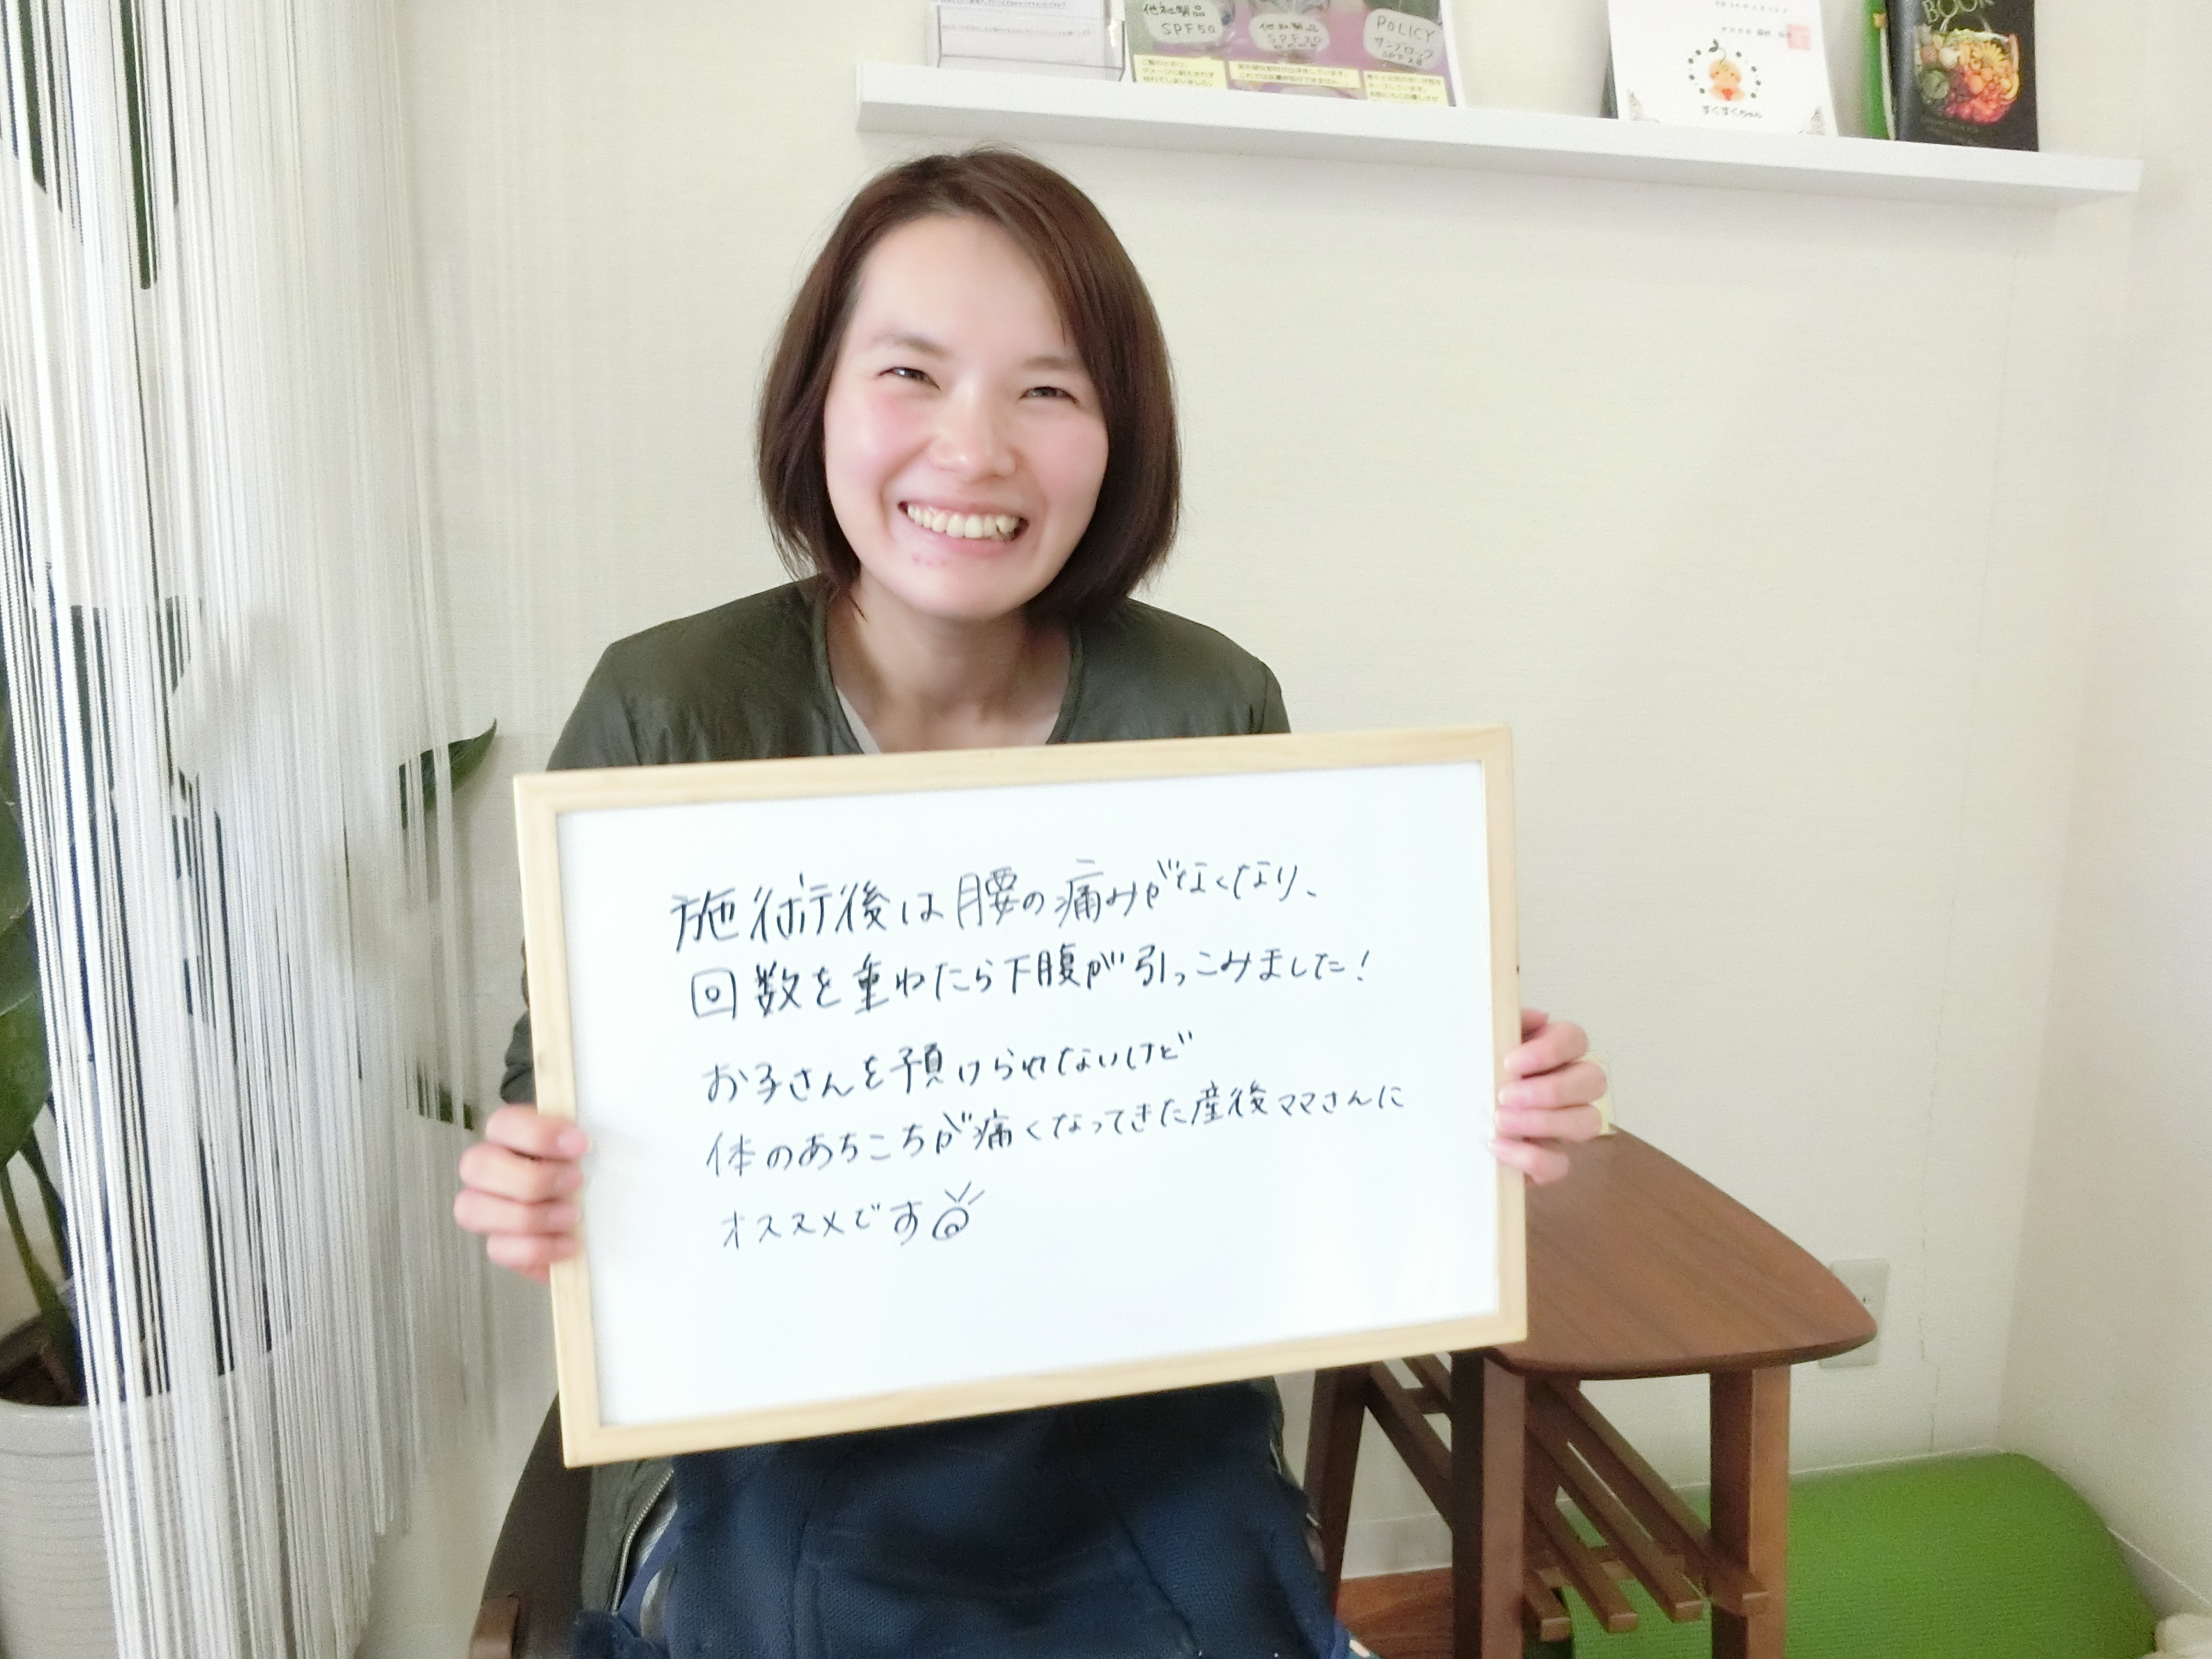 他社製品
SPF50
他社製品
SPF20
POLICY
サンブロック
すくすくちゃん
BOOK
施術後は腰の痛みがなくなり、
回数を重ねたら下腹が引っこみました!
お子さんを預けられないけど
体のあちこちが痛くなってきた産後ママさんに
オススメです